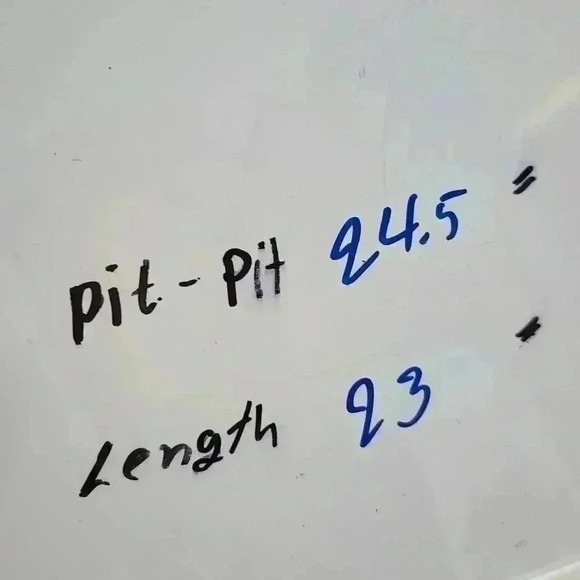 Pit - Pit 24.5 "
Length 23 "